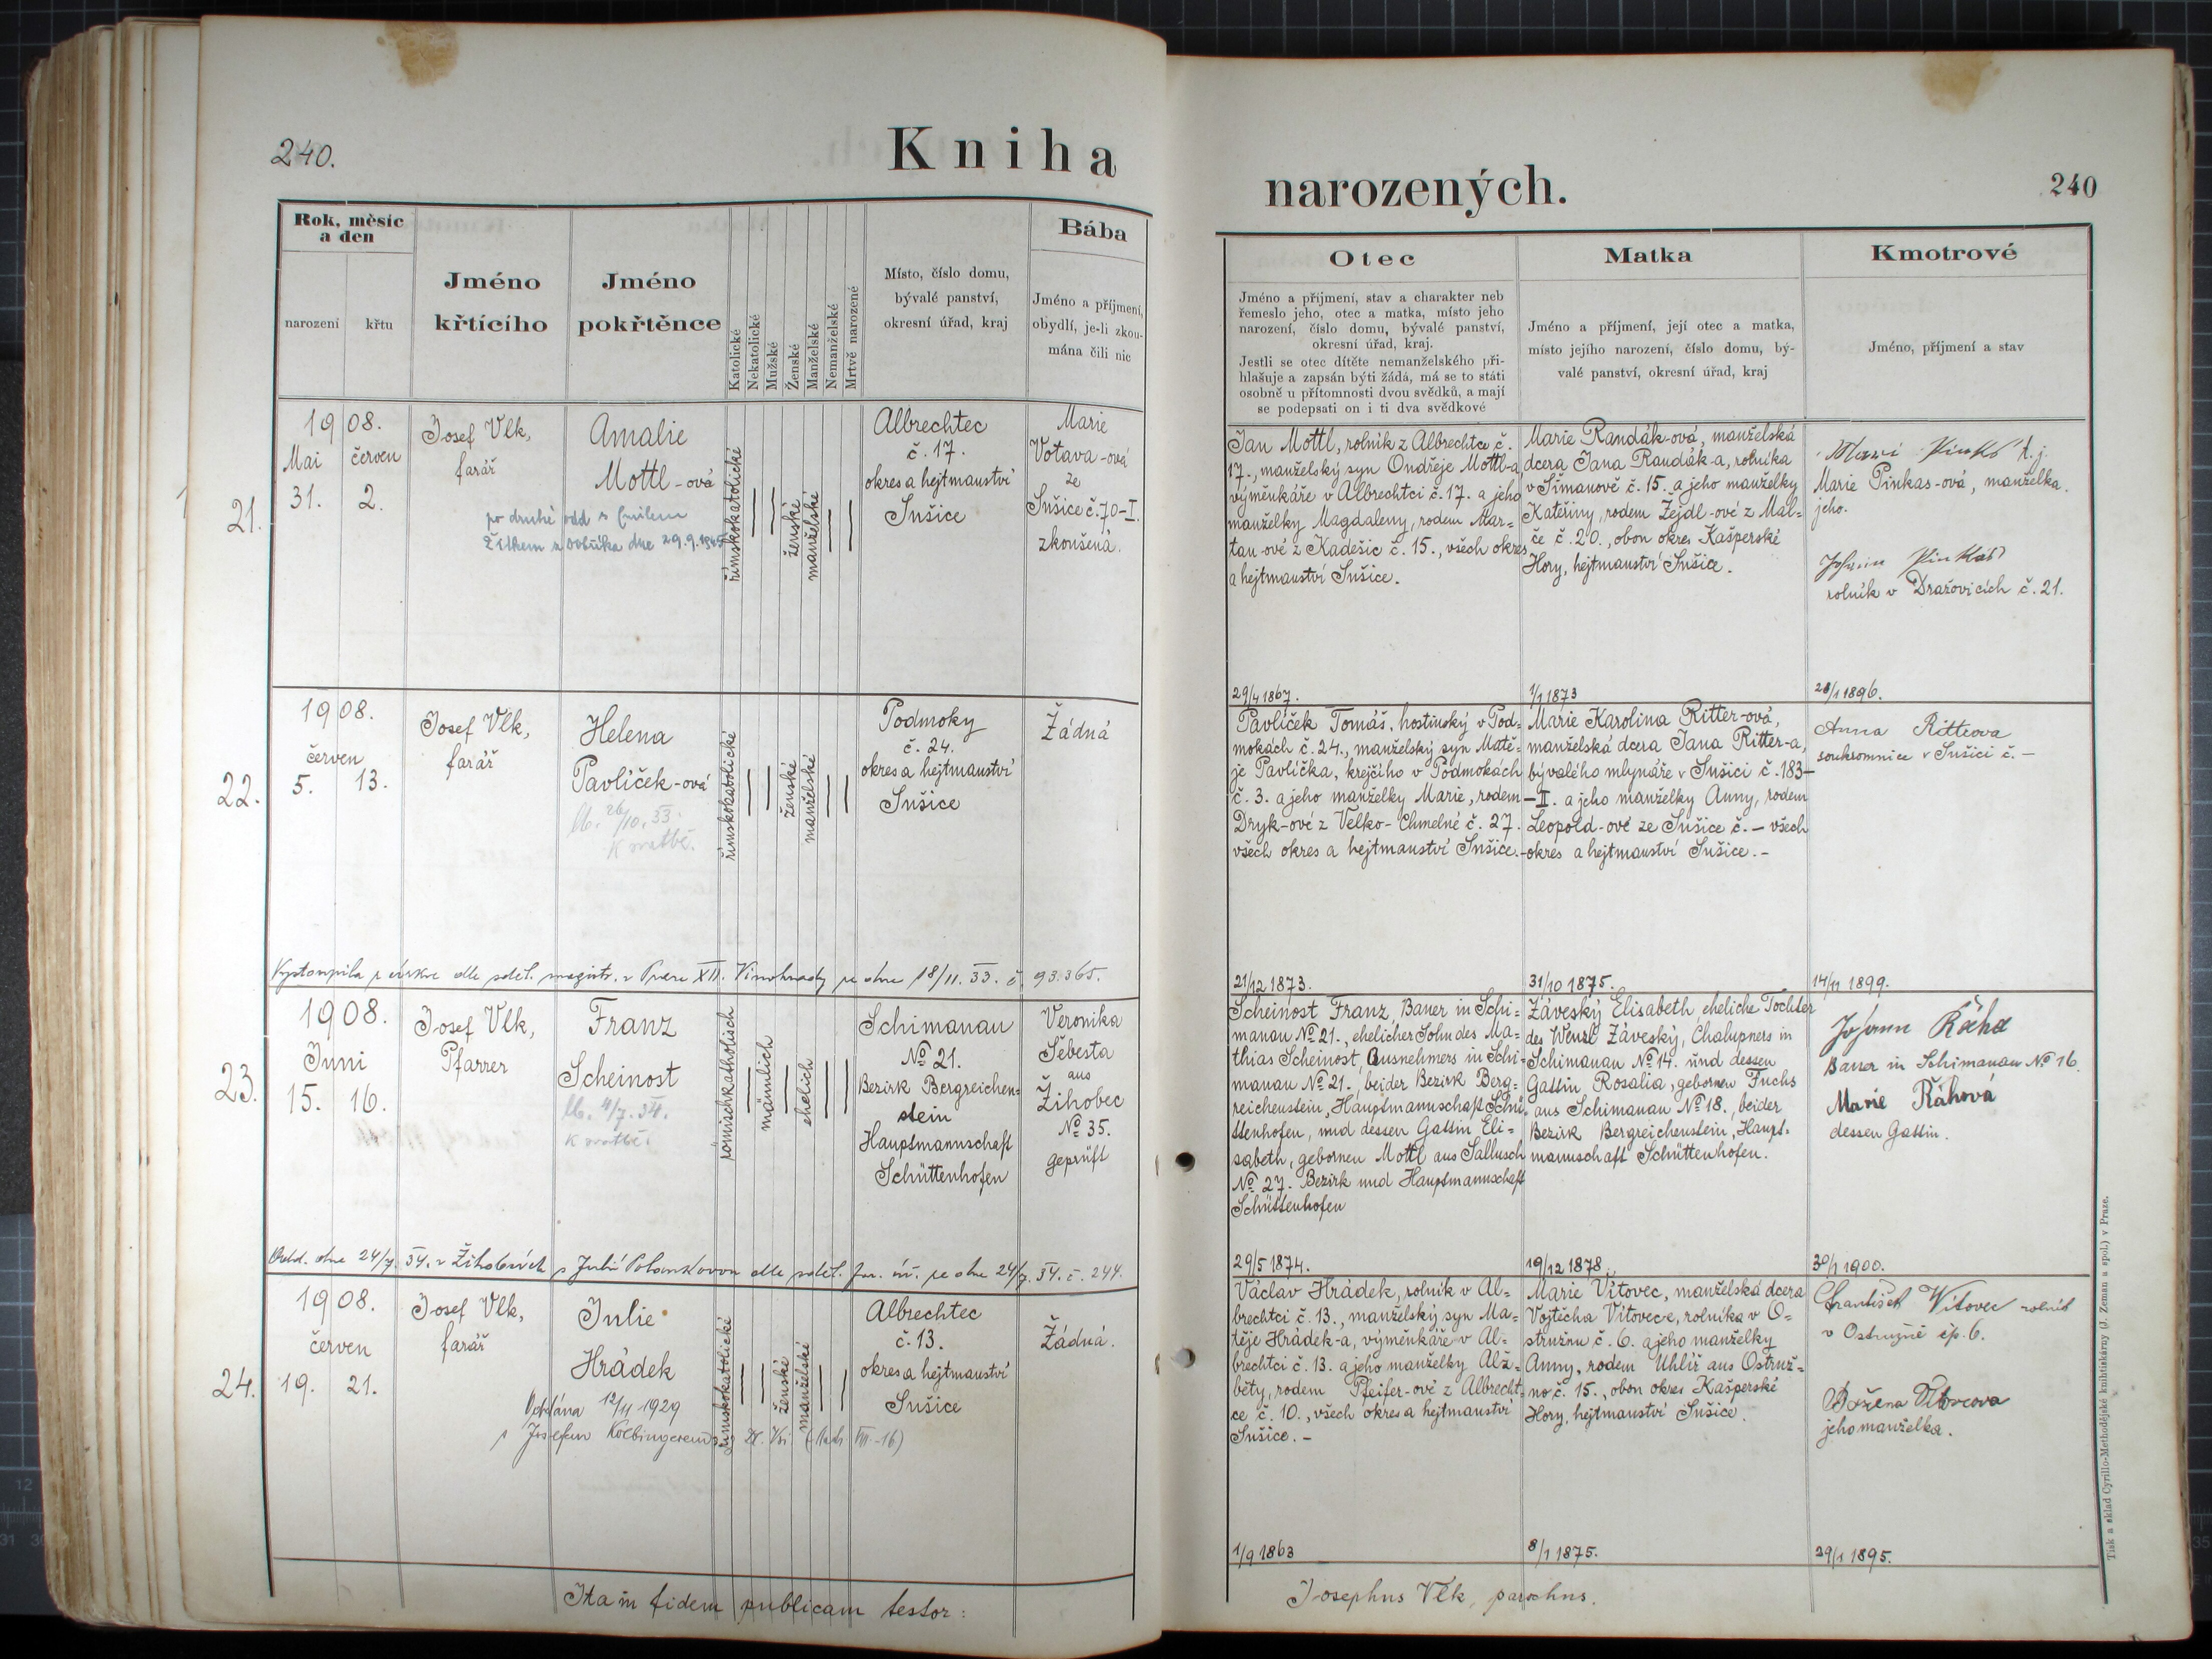 240.
Kniha
Rok, měsíc
a den
narození
křtu
Jméno
křtícího
Jméno
pokřtěnce
Katolické
Nekatolické
Mužské
Ženské
Manželské
Nemanželské
Mrtvě narozené
Místo, číslo domu,
bývalé panství,
okresní úřad, kraj
Bába
Jméno a příjmení,
obydlí, je-li zkou-
mána čili nic
21.
1908.
Mai červen
31. 2.
Josef Vlk,
farář
Amalie
Mottl-ová
po druhé odd s Emilem
dne 29.9.1945
římskokatolické
ženské
manželské
Albrechtec
č. 17.
okres a hejtmanství
Sušice
Marie
Votava-ová
ze
Sušice č. 70-I.
zkoušená.
22.
1908.
červen
5. 13.
Josef Vlk,
farář
Helena
Pavlíček-ová
lb. 26/10. 33.
k svatbě.
římskokatolické
ženské
manželské
Podmoky
č. 24.
okres a hejtmanství
Sušice
Žádná
Vystoupila z církve dle sděl. magistr. v Praze XII. Vinohrady ze dne 18/11. 33. č. 93.365.
23.
1908.
Juni
15. 16.
Josef Vlk,
Pfarrer
Franz
Scheinost
lb. 4/7. 34.
k svatbě.
römischkatholisch
männlich
ehelich
Schimanau
No 21.
Bezirk Bergreichen-
stein
Hauptmannschaft
Schüttenhofen
Veronika
Šebesta
aus
Žihobec
No 35.
geprüft
Odd. dne 24/7. 34. v Žihobcích s Julií Polankovou dle sděl. far. úř. ze dne 24/7. 34. č. 244.
24.
1908.
červen
19. 21.
Josef Vlk,
farář
Julie
Hrádek
Oddána 12/11 1929
s Josefem
římskokatolické
ženské
manželské
Albrechtec
č. 13.
okres a hejtmanství
Sušice
Žádná.
Ita in fidem publicam testor:
narozených.
240
Otec
Jméno a příjmení, stav a charakter neb
řemeslo jeho, otec a matka, místo jeho
narození, číslo domu, bývalé panství,
okresní úřad, kraj.
Jestli se otec dítěte nemanželského při-
hlašuje a zapsán býti žádá, má se to státi
osobně u přítomnosti dvou svědků, a mají
se podepsati on i ti dva svědkové
Matka
Jméno a příjmení, její otec a matka,
místo jejího narození, číslo domu, bý-
valé panství, okresní úřad, kraj
Kmotrové
Jméno, příjmení a stav
Jan Mottl, rolník z Albrechtce č.
17., manželský syn Ondřeje Mottl-a,
výměnkáře v Albrechtci č. 17. a jeho
manželky Magdaleny, rodem Mar-
tan-ové z Kadešic č. 15., všech okres
a hejtmanství Sušice.
29/4 1867.
Marie Randák-ová, manželská
dcera Jana Randák-a, rolníka
v Šimanově č. 15. a jeho manželky
Kateřiny, rodem Žejdl-ové z Mal-
če č. 20., obou okres Kašperské
Hory, hejtmanství Sušice.
1/1 1873
Marie Pinkas-ová, manželka
jeho.
Johann Pinkas
rolník v Dražovicích č. 21.
28/1 1896.
Pavlíček Tomáš, hostinský v Pod=
mokách č. 24., manželský syn Matě-
je Pavlíčka, krejčího v Podmokách
č. 3. a jeho manželky Marie, rodem
Dryk-ové z Velko-Chmelné č. 27.
všech okres a hejtmanství Sušice.
21/12 1873.
Marie Karolina Ritter-ová,
manželská dcera Jana Ritter-a,
bývalého mlynáře v Sušici č. 183-
-II. a jeho manželky Anny, rodem
Leopold-ové ze Sušice č. - všech
okres a hejtmanství Sušice. -
31/10 1875.
Anna Rittrova
soukromnice v Sušici č. -
14/11 1899.
Scheinost Franz, Bauer in Schi=
manau No 21., ehelicher Sohn des Ma-
thias Scheinost, Ausnehmers in Schi-
manau No 21. beider Bezirk Berg=
reichenstein, Hauptmannschaft Schü-
ttenhofen, und dessen Gattin Eli-
sabeth, gebornen Mottl aus Sallusch
No 27. Bezirk und Hauptmannschaft
Schüttenhofen
29/5 1874.
Záveský Elisabeth, eheliche Tochter
des Wenzl Záveský, Chalupners in
Schimanau No 14. und dessen
Gattin Rosalia, gebornen Fuchs
aus Schimanau No 18., beider
Bezirk Bergreichenstein, Haupt-
mannschaft Schüttenhofen.
19/12 1878.
Johann Řáha
Bauer in Schimanau No 16.
Marie Řáhová
dessen Gattin.
30/1 1900.
Václav Hrádek, rolník v Al-
brechtci č. 13., manželský syn Ma-
těje Hrádek-a, výměnkáře v Al-
brechtci č. 13. a jeho manželky Alž-
běty, rodem Pfeifer-ové z Albrecht-
ce č. 10., všech okres a hejtmanství
Sušice. -
1/9 1863
Marie Vítovec, manželská dcera
Vojtěcha Vítovec-e, rolníka v O-
stružnu č. 6. a jeho manželky
Anny, rodem Uhlíř aus Ostruž-
no č. 15., obou okres Kašperské
Hory, hejtmanství Sušice.
8/1 1875.
František Witovec rolník
v Ostružně čp. 6.
Božena Vitovcova
jeho manželka.
29/1 1895.
Josephus Vlk, parochus.
Tisk a sklad Cyrillo-Methodějské knihtiskárny (J. Zeman a spol.) v Praze.